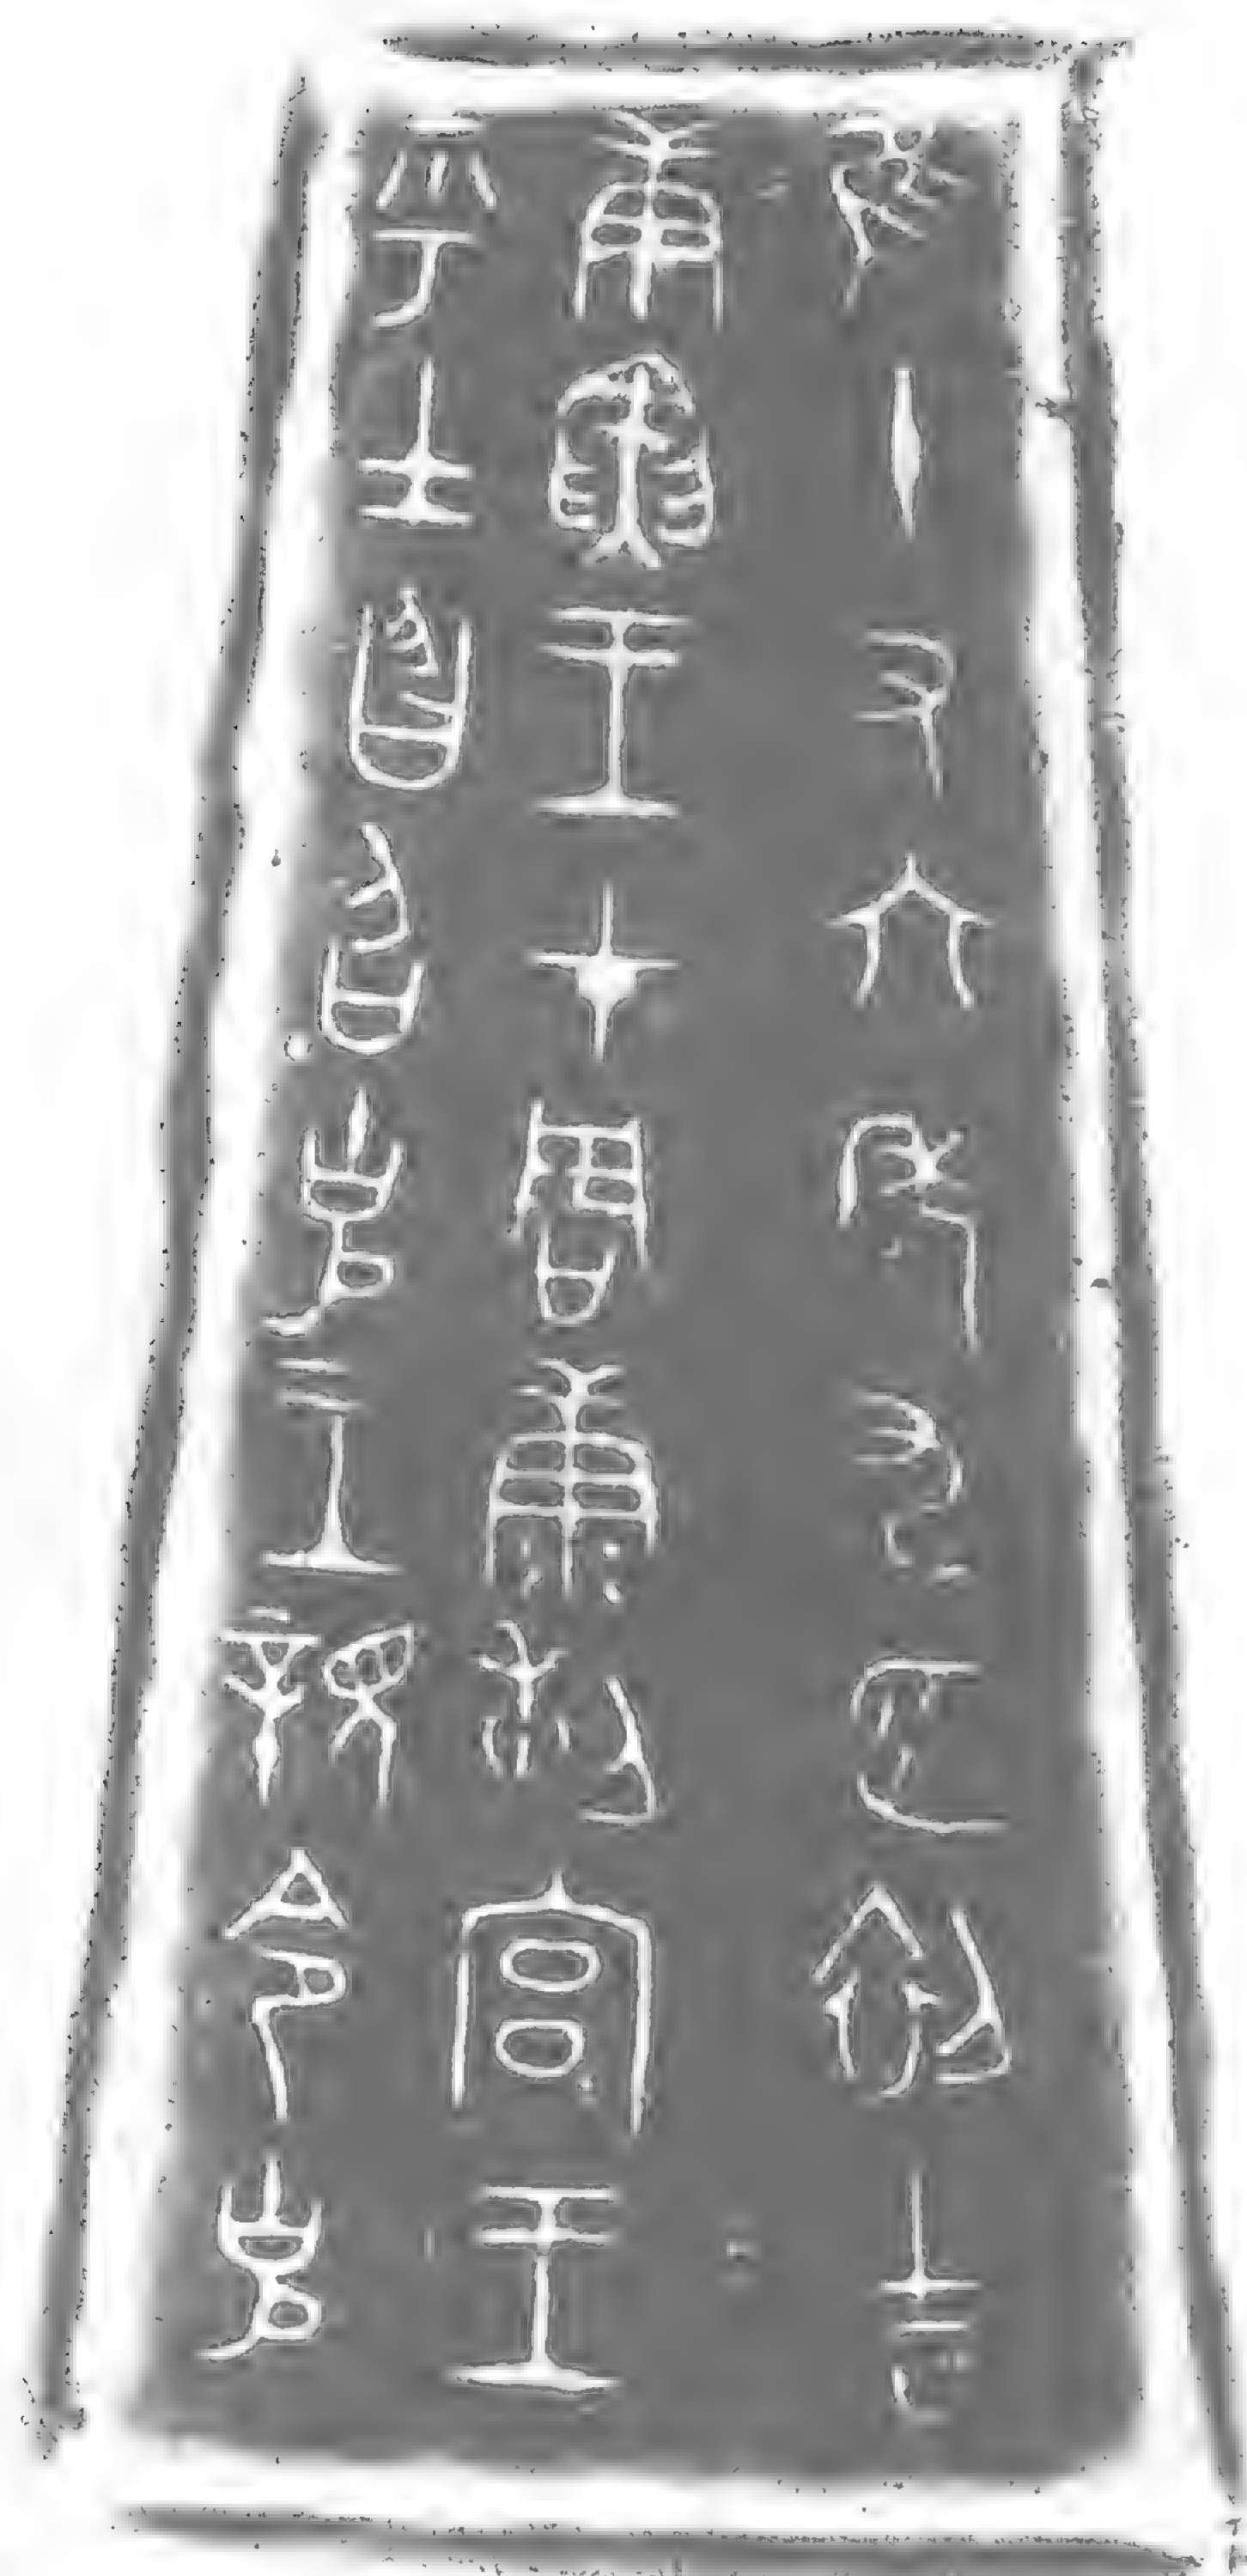 隹十又六年九月初吉
庚寅王才周康剌宮王
乎士曶召克王親令克